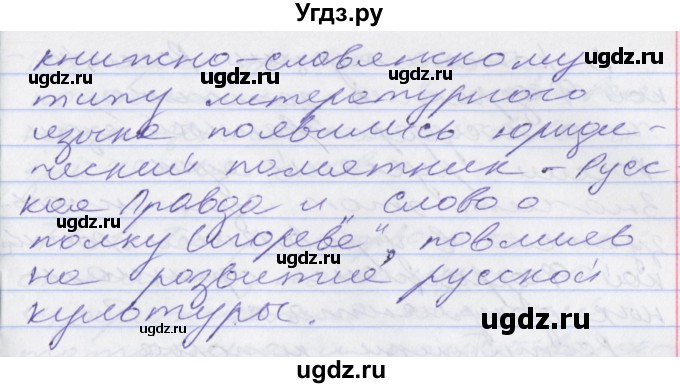 Угдз.ру
книжно-славянскому
типу литературного
языка появились юриди-
ческий памятник - Русс
кая Правда и Слово о
полку Игореве", повлияв
на развитие русской
культуры.
ugdz.ru
ugdz.ru
ugdz.ru
ugdz.ru
ugdz.ru
ugdz.ru
ugdz.ru
ugdz.ru
ugdz.ru
ugdz.ru
Угдз.ру